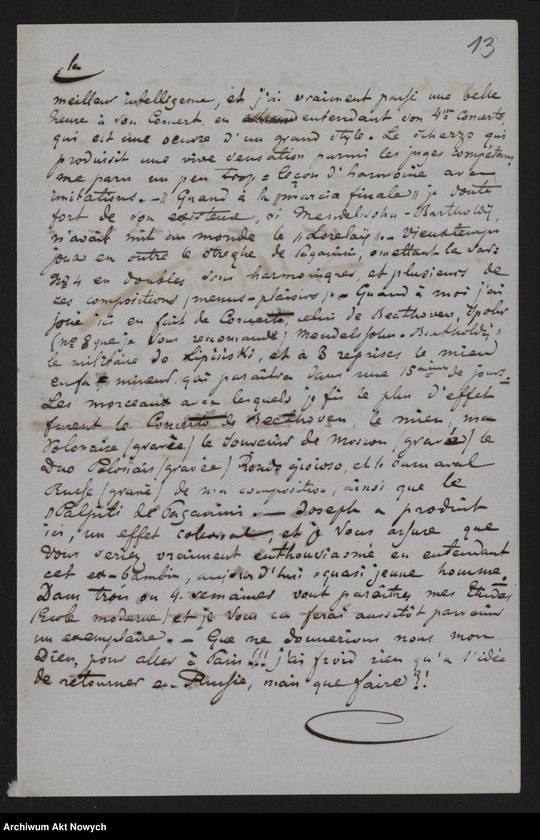 13
la
meilleur intelligence, et j'ai vraiment passé une belle
heure à son Concert en entendant son 4ème Concerto,
qui est une oeuvre d'un grand style. Le scherzo qui
produisit une vive sensation parmi les juges compétans,
me paru un peu trop, leçon d'harmonie avec
imitations. - Quand à la "marcia finale" je doute
fort de son existence, si Mendelsohn-Bartholdy,
n'avait mit au monde le "Lorelay". - Vieuxtemps
joua en outre le Streghe de Paganini, omettant la Var:
No 4 en doubles sons harmoniques, et plusieurs de
ses compositions (menus-plaisirs). - Quand à moi j'ai
joué ici en fait de Concerto, celui de Beethoven, Spohr
(No 8 que je Vous recomande) Mendelsohn-Bartholdy,
le militaire de Lipinski, et à 3 reprises le mien
en fa # mineur, qui paraîtra dans une 15aine de jours.
Les morceaux avec lesquels je fis le plus d'effet
furent le Concerto de Beethoven, le mien, ma
Polonaise (gravée) le Souvenir de Moscou (gravé) le
Duo Polonais (gravée) Rondo giojoso, et le Carnaval
Russe (gravé) de ma composition, ainsi que le
"Palpiti de Paganini. - Joseph a produit
ici, un effet colossal, et je Vous assure que
Vous seriez vraiment enthousiasmé en entendant
cet ex-bambin, aujourd'hui "quasi jeune homme.
Dans trois ou 4. semaines vont paraître mes Etudes
(Ecole moderne) et je Vous en ferai aussitôt parvenir
un exemplaire. - Que ne donnerions nous mon
Dieu, pour aller à Paris!!! j'ai froid rien qu'a l'idée
de retourner en Russie, mais que faire?!
Archiwum Akt Nowych